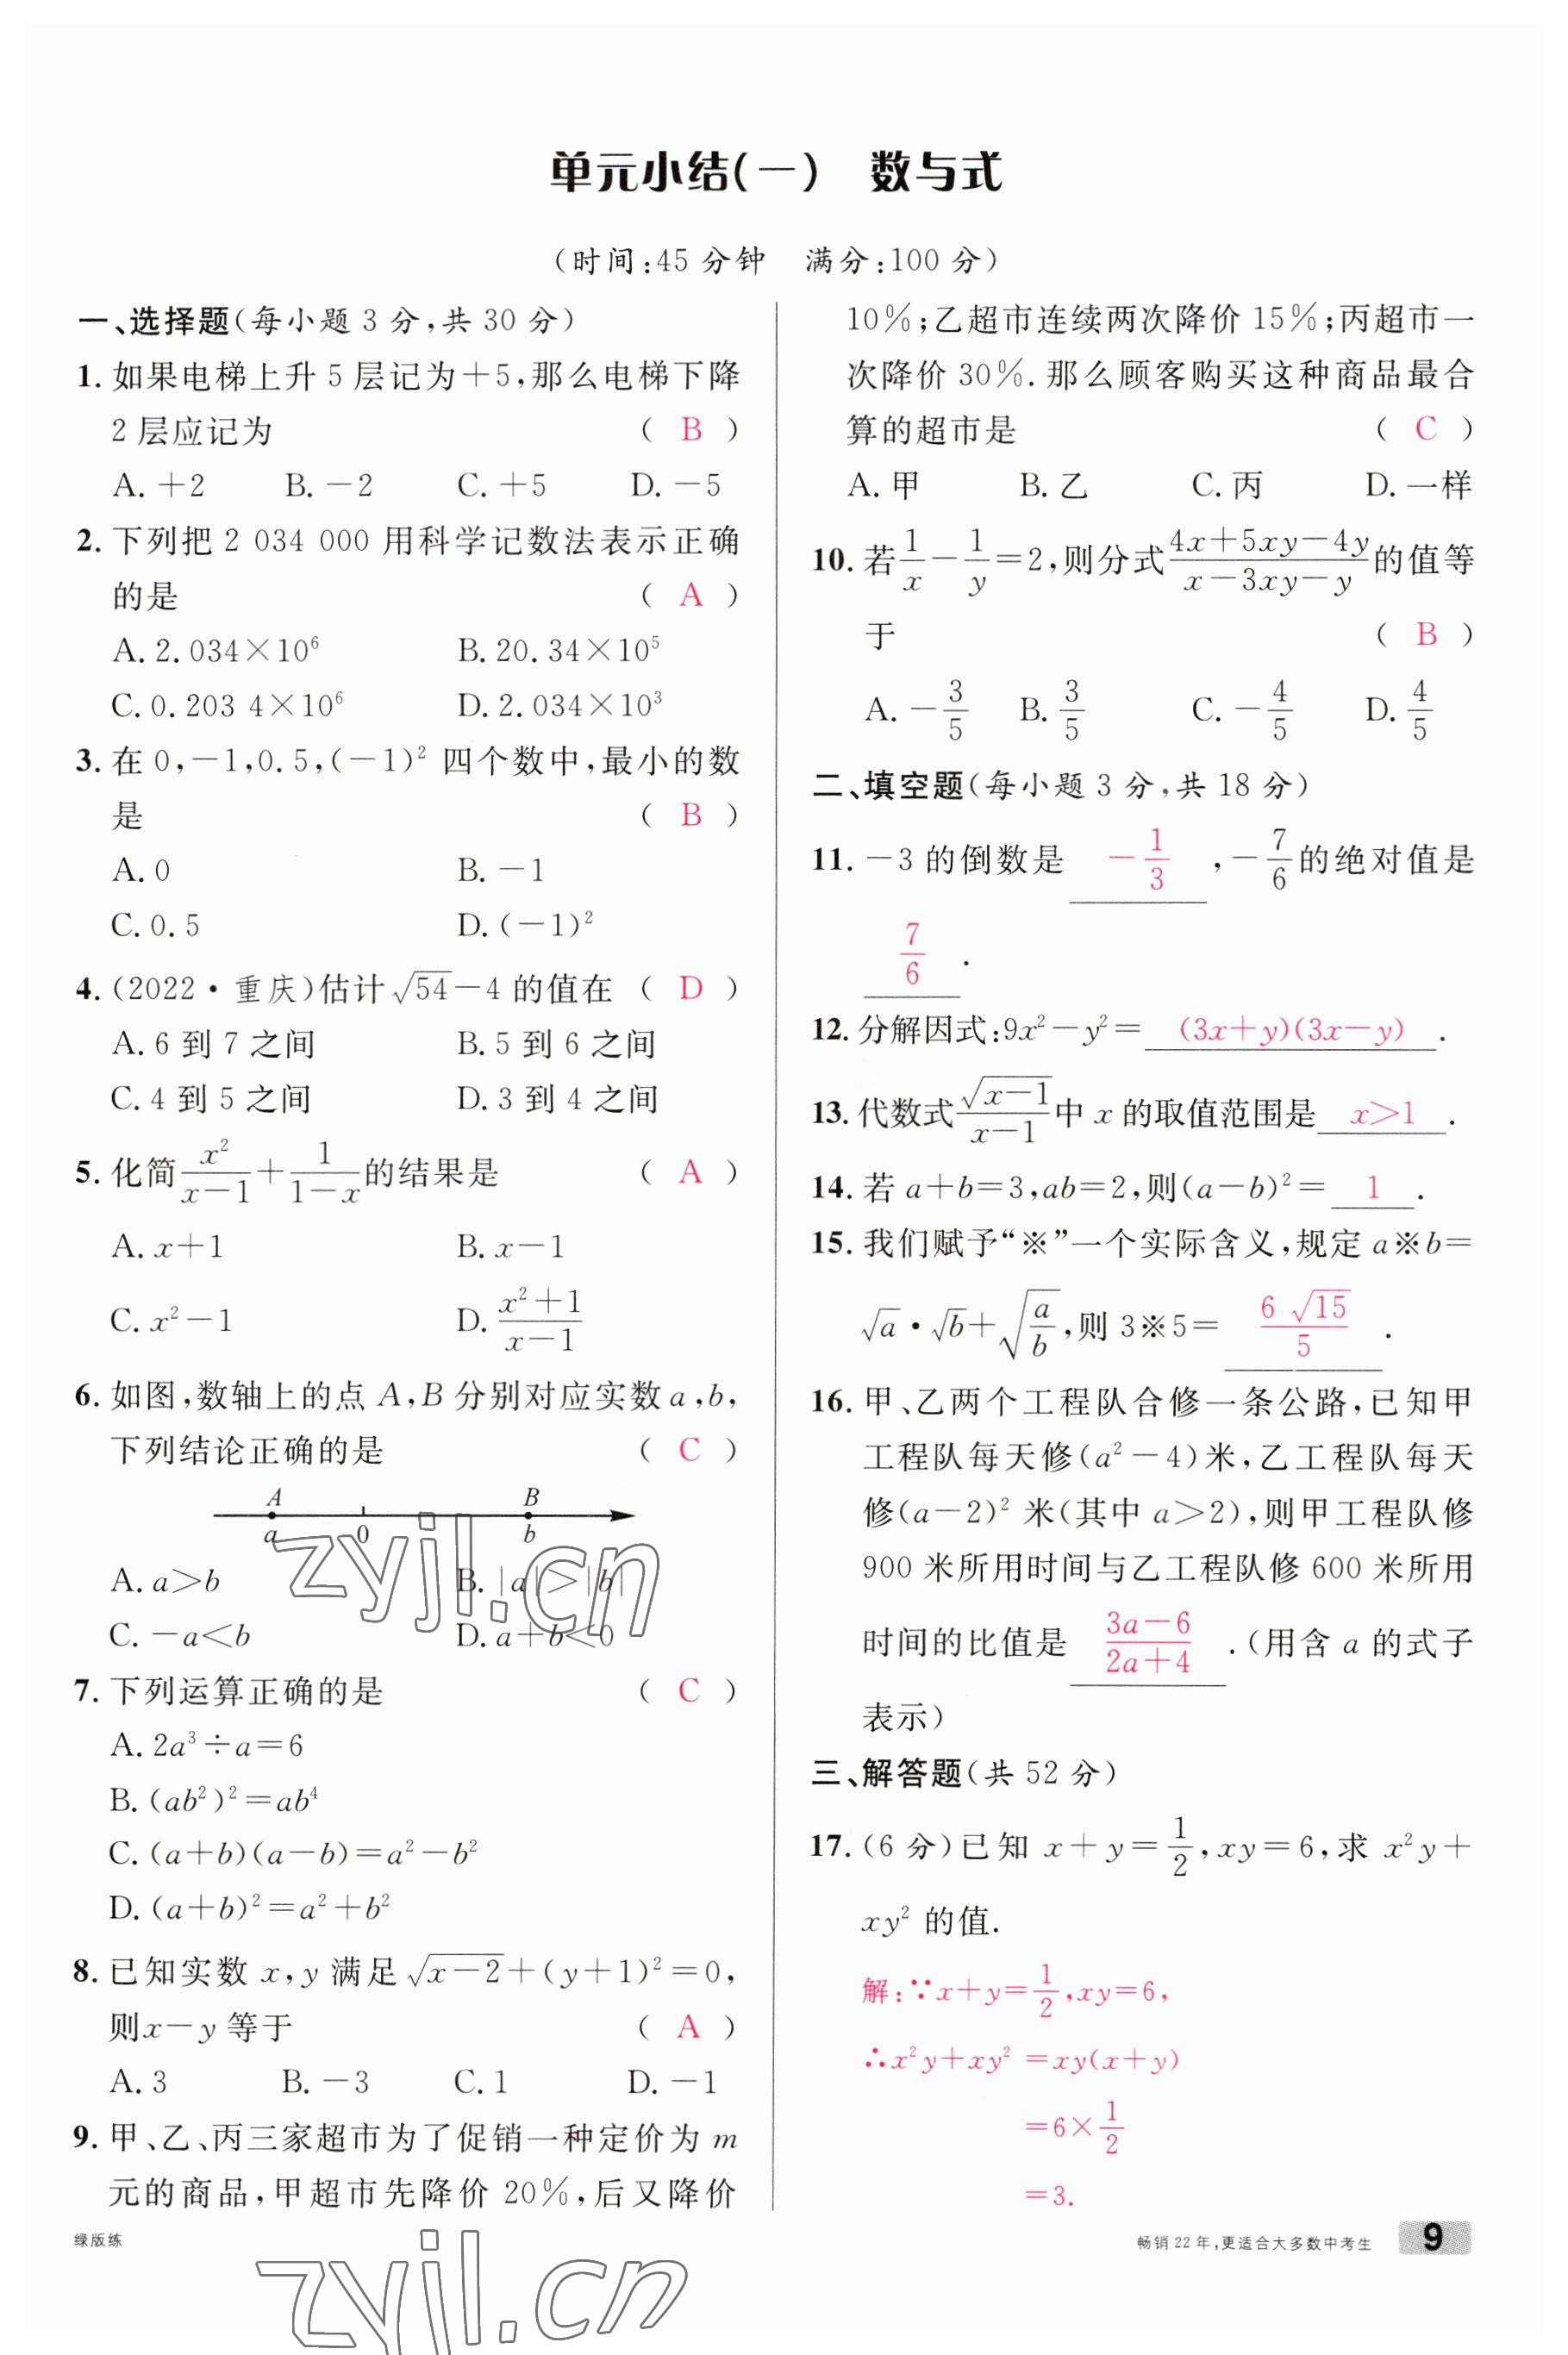 单元小结(一)　数与式
(时间:45 分钟　满分:100 分)
一、选择题(每小题 3 分,共 30 分)
1. 如果电梯上升 5 层记为+5,那么电梯下降
2 层应记为 ( B )
A. +2　B. −2　C. +5　D. −5
2. 下列把 2 034 000 用科学记数法表示正确
的是 ( A )
A. 2.034×10⁶　B. 20.34×10⁵
C. 0.203 4×10⁶　D. 2.034×10³
3. 在 0,−1,0.5,(−1)² 四个数中,最小的数
是 ( B )
A. 0　B. −1
C. 0.5　D. (−1)²
4. (2022·重庆)估计√54−4 的值在 ( D )
A. 6 到 7 之间　B. 5 到 6 之间
C. 4 到 5 之间　D. 3 到 4 之间
5. 化简x²/(x−1)+1/(1−x)的结果是 ( A )
A. x+1　B. x−1
C. x²−1　D. (x²+1)/(x−1)
6. 如图,数轴上的点 A,B 分别对应实数 a,b,
下列结论正确的是 ( C )
A　B
a　0　b
A. a>b　B. |a|>|b|
C. −a<b　D. a+b<0
7. 下列运算正确的是 ( C )
A. 2a³÷a=6
B. (ab²)²=ab⁴
C. (a+b)(a−b)=a²−b²
D. (a+b)²=a²+b²
8. 已知实数 x,y 满足√(x−2)+(y+1)²=0,
则x−y 等于 ( A )
A. 3　B. −3　C. 1　D. −1
9. 甲、乙、丙三家超市为了促销一种定价为 m
元的商品,甲超市先降价 20%,后又降价
10%;乙超市连续两次降价 15%;丙超市一
次降价 30%.那么顾客购买这种商品最合
算的超市是 ( C )
A. 甲　B. 乙　C. 丙　D. 一样
10. 若1/x−1/y=2,则分式(4x+5xy−4y)/(x−3xy−y)的值等
于 ( B )
A. −3/5　B. 3/5　C. −4/5　D. 4/5
二、填空题(每小题 3 分,共 18 分)
11. −3 的倒数是 −1/3 ,−7/6的绝对值是
7/6 .
12. 分解因式:9x²−y²= (3x+y)(3x−y) .
13. 代数式√(x−1)/(x−1)中 x 的取值范围是 x>1 .
14. 若 a+b=3,ab=2,则(a−b)²= 1 .
15. 我们赋予“※”一个实际含义,规定 a※b=
√a·√b+√(a/b),则 3※5= 6√15/5 .
16. 甲、乙两个工程队合修一条公路,已知甲
工程队每天修(a²−4)米,乙工程队每天
修(a−2)² 米(其中 a>2),则甲工程队修
900 米所用时间与乙工程队修 600 米所用
时间的比值是 (3a−6)/(2a+4) .(用含 a 的式子
表示)
三、解答题(共 52 分)
17. (6 分)已知 x+y=1/2,xy=6,求 x²y+
xy² 的值.
解:∵x+y=1/2,xy=6,
∴x²y+xy²=xy(x+y)
=6×1/2
=3.
绿版练
畅销 22 年,更适合大多数中考生　9
zyjl.cn
zyjl.cn